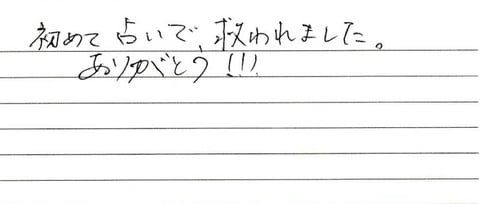 初めて占いで、救われました。
ありがとう!!!